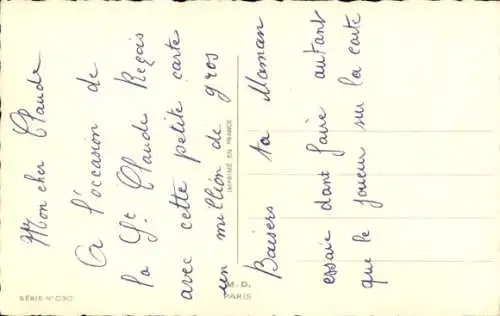 Mon cher Claude
A l'occasion de
la St Claude Reçois
avec cette petite carte
un million de gros
Baisers ta Maman
essaie dant faire autant
que le joueur sur la carte
IMPRIMÉ EN FRANCE
M.D.
PARIS
SÉRIE N° 030